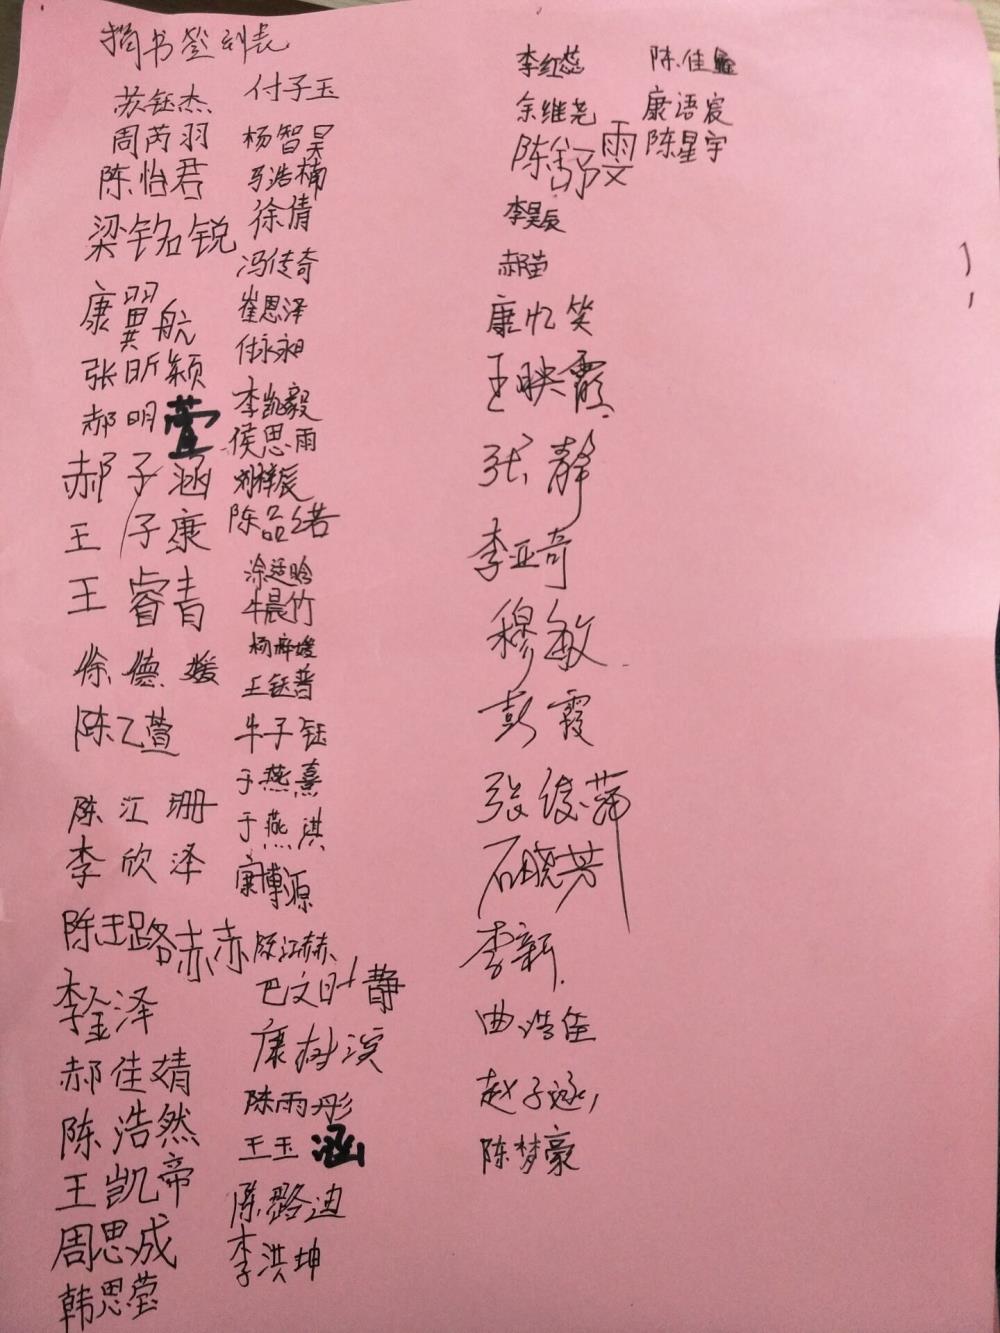 捐书签到表
苏钰杰
周芮羽
陈怡君
梁铭锐
康翼航
张昕颖
郝明萱
郝子涵
王子康
王睿青
徐德媛
陈乙萱
陈汇珊
李欣泽
陈王路赫
李金泽
郝佳婧
陈浩然
王凯帝
周思成
韩思莹
付子玉
杨智昊
马浩楠
徐倩
冯传奇
崔恩泽
付永昶
李凯毅
侯思雨
刘梓辰
陈品诺
涂廷晗
牛晨竹
杨梓媛
王钰普
牛子钰
于燕熹
于燕淇
康博源
陈江赫
巴文静
康树滨
陈雨彤
王玉涵
陈璐迪
李洪坤
李红蕊
余维尧
陈舒雯
李昊辰
郝苗
康忆笑
王映霞
张静
李亚奇
穆敏
彭霞
张绫萍
石晓芳
李新
曲浩佳
赵子涵
陈梦豪
陈佳鑫
康语宸
陈星宇